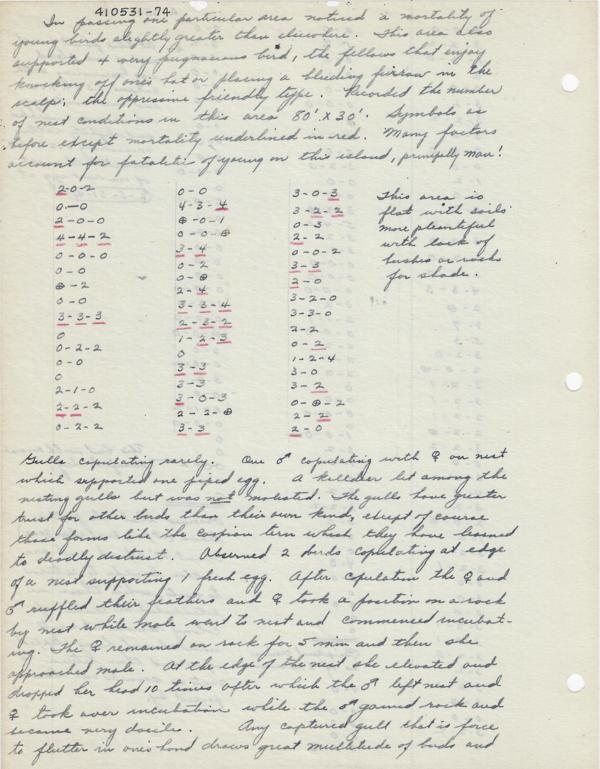 410531-74
In passing one particular area noticed a mortality of
young birds slightly greater than elsewhere. This area also
supported 4 very pugnacious bird, the fellows that enjoy
knocking off ones hat or placing a bleeding furrow in the
scalp; the oppressive friendly type. Recorded the number
of nest conditions in this area 80' X 30'. Symbols as
before except mortality underlined in red. Many factors
account for fatalities of young on this island, principally man!
2-0-2 0-0 3-0-3 This area is
0-0 4-3-4 3-2-2 flat with soils
2-0-0 ⊕-0-1 0-3 more pleantiful
4-4-2 0-0-⊕ 2-2 with lack of
0-0-0 3-4 0-0-2 bushes or rocks
0-0 0-2 3-3 for shade.
⊕-2 0-⊕ 2-0
0-0 2-4 3-2-0
3-3-3 3-3-4 3-3-0
0 2-3-2 2-2
0-2-2 1-2-3 0-2
0-0 0 1-2-4
0 3-3 3-0
2-1-0 3-3 3-2
2-2-2 3-0-3 0-⊕-2
0-2-2 2-2-⊕ 2-2
3-3 2-0
Gulls copulating rarely. One ♂ copulating with ♀ on nest
which supported one piped egg. A killdeer lit among the
nesting gulls but was not molested. The gulls have greater
trust for other birds than their own kind, except of course
those forms like the caspian tern which they have learned
to deadly distrust. Observed 2 birds copulating at edge
of a nest supporting 1 fresh egg. After copulation the ♀ and
♂ ruffled their feathers and ♀ took a position on a rock
by nest while male went to nest and commenced incubat-
ing. The ♀ remained on rock for 5 min and then she
approached male. At the edge of the nest she elevated and
dropped her head 10 times after which the ♂ left nest and
♀ took over incubation while the ♂ gained rock and
became very docile. Any captured gull that is force
to flutter in ones hand draws great multitude of birds and